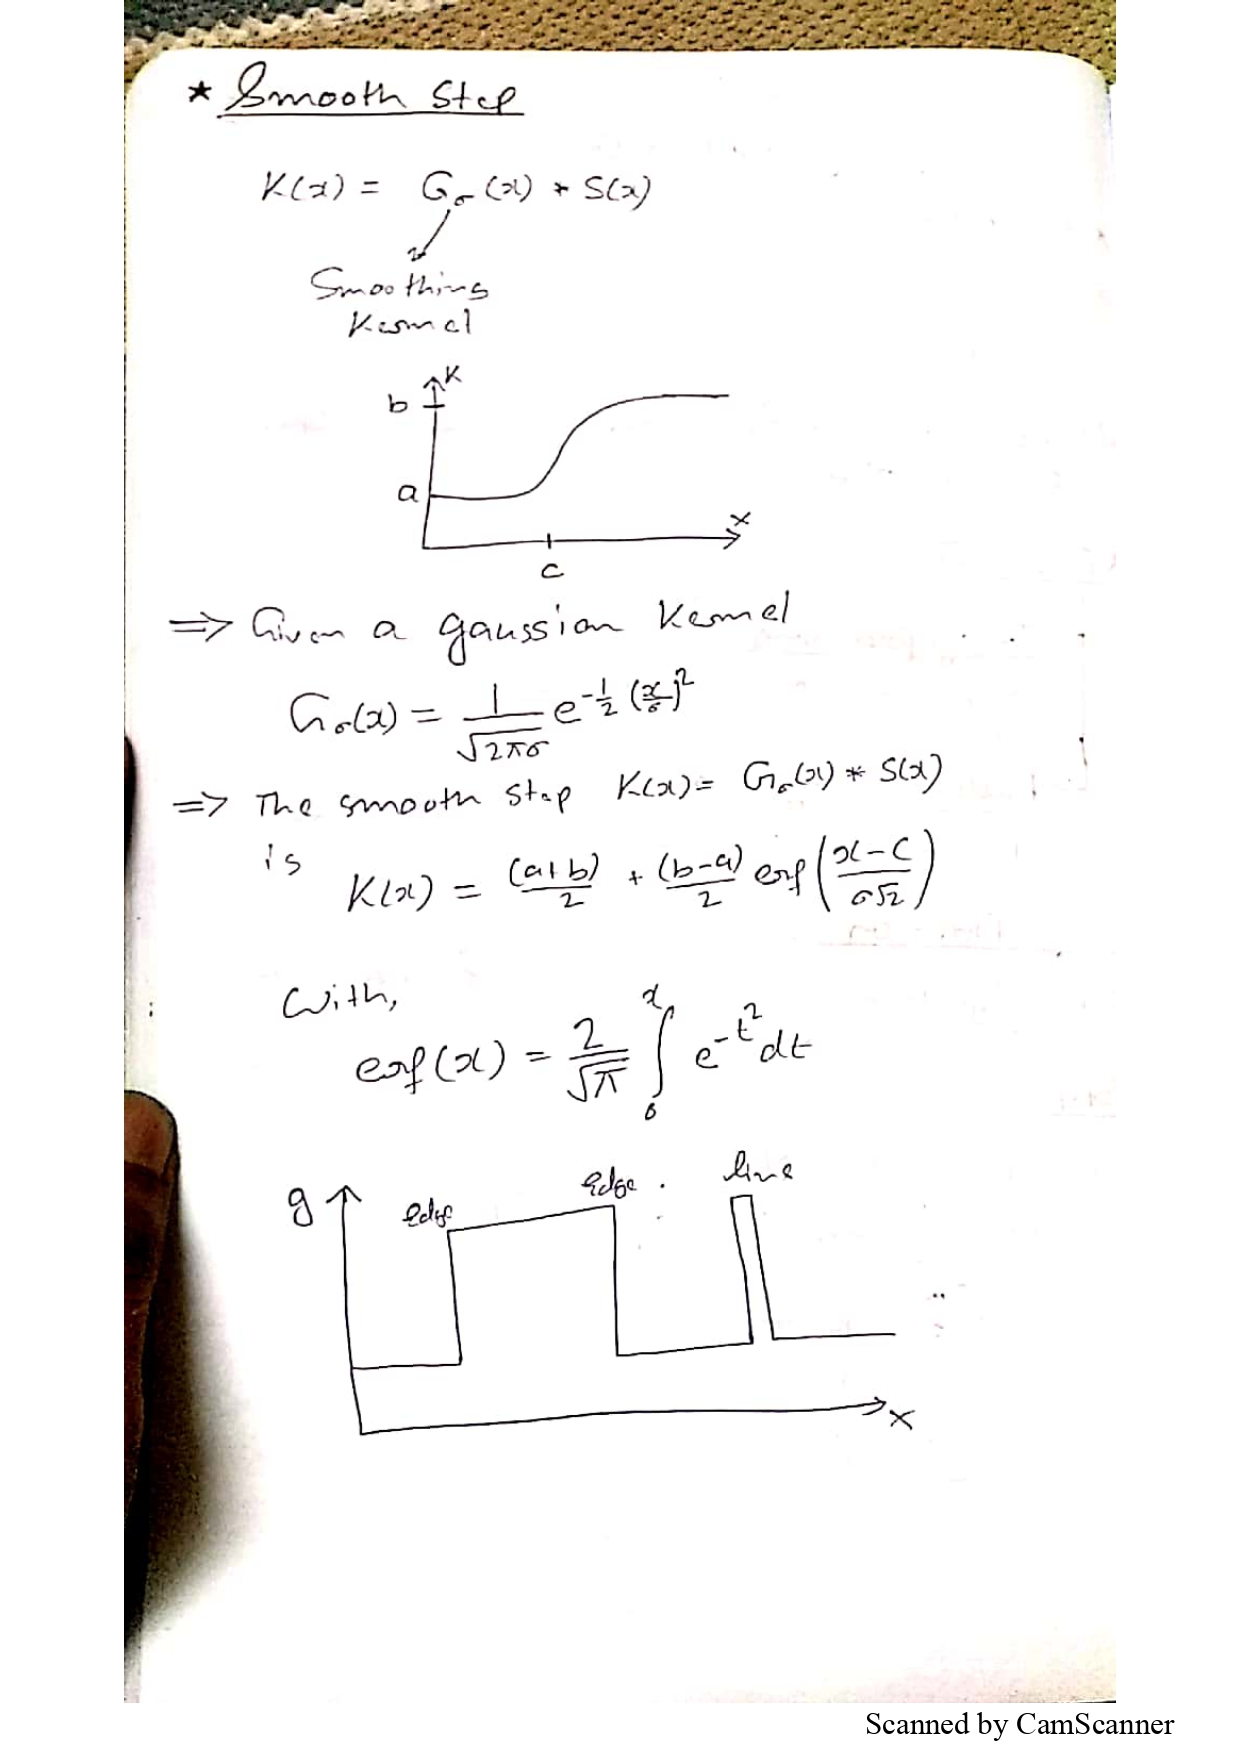 * Smooth Step
K(x) = Gσ(x) * S(x)
Smoothing
Kernel
K
b
a
x
c
=> Given a gaussian Kernel
Gσ(x) = 1/√2πσ e^-1/2 (x/σ)^2
=> The smooth step K(x) = Gσ(x) * S(x)
is
K(x) = (a+b)/2 + (b-a)/2 erf((x-c)/σ√2)
With,
erf(x) = 2/√π ∫₀ˣ e^-t^2 dt
line
edge
edge
g
x
Scanned by CamScanner